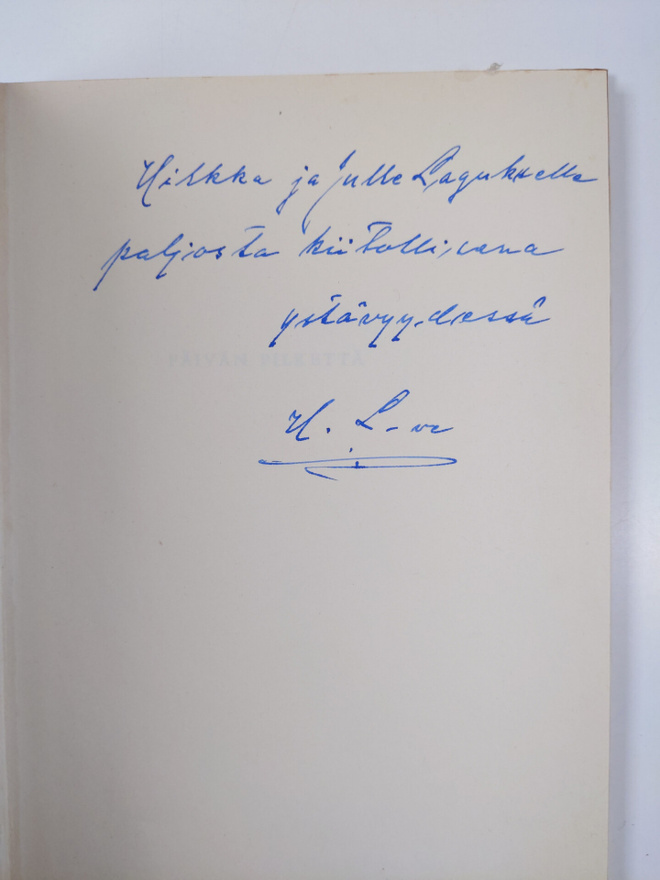 Hilkka ja Julle Lagukselle
paljosta kiitollisena
ystävyydessä
PÄIVÄN
H. L-va